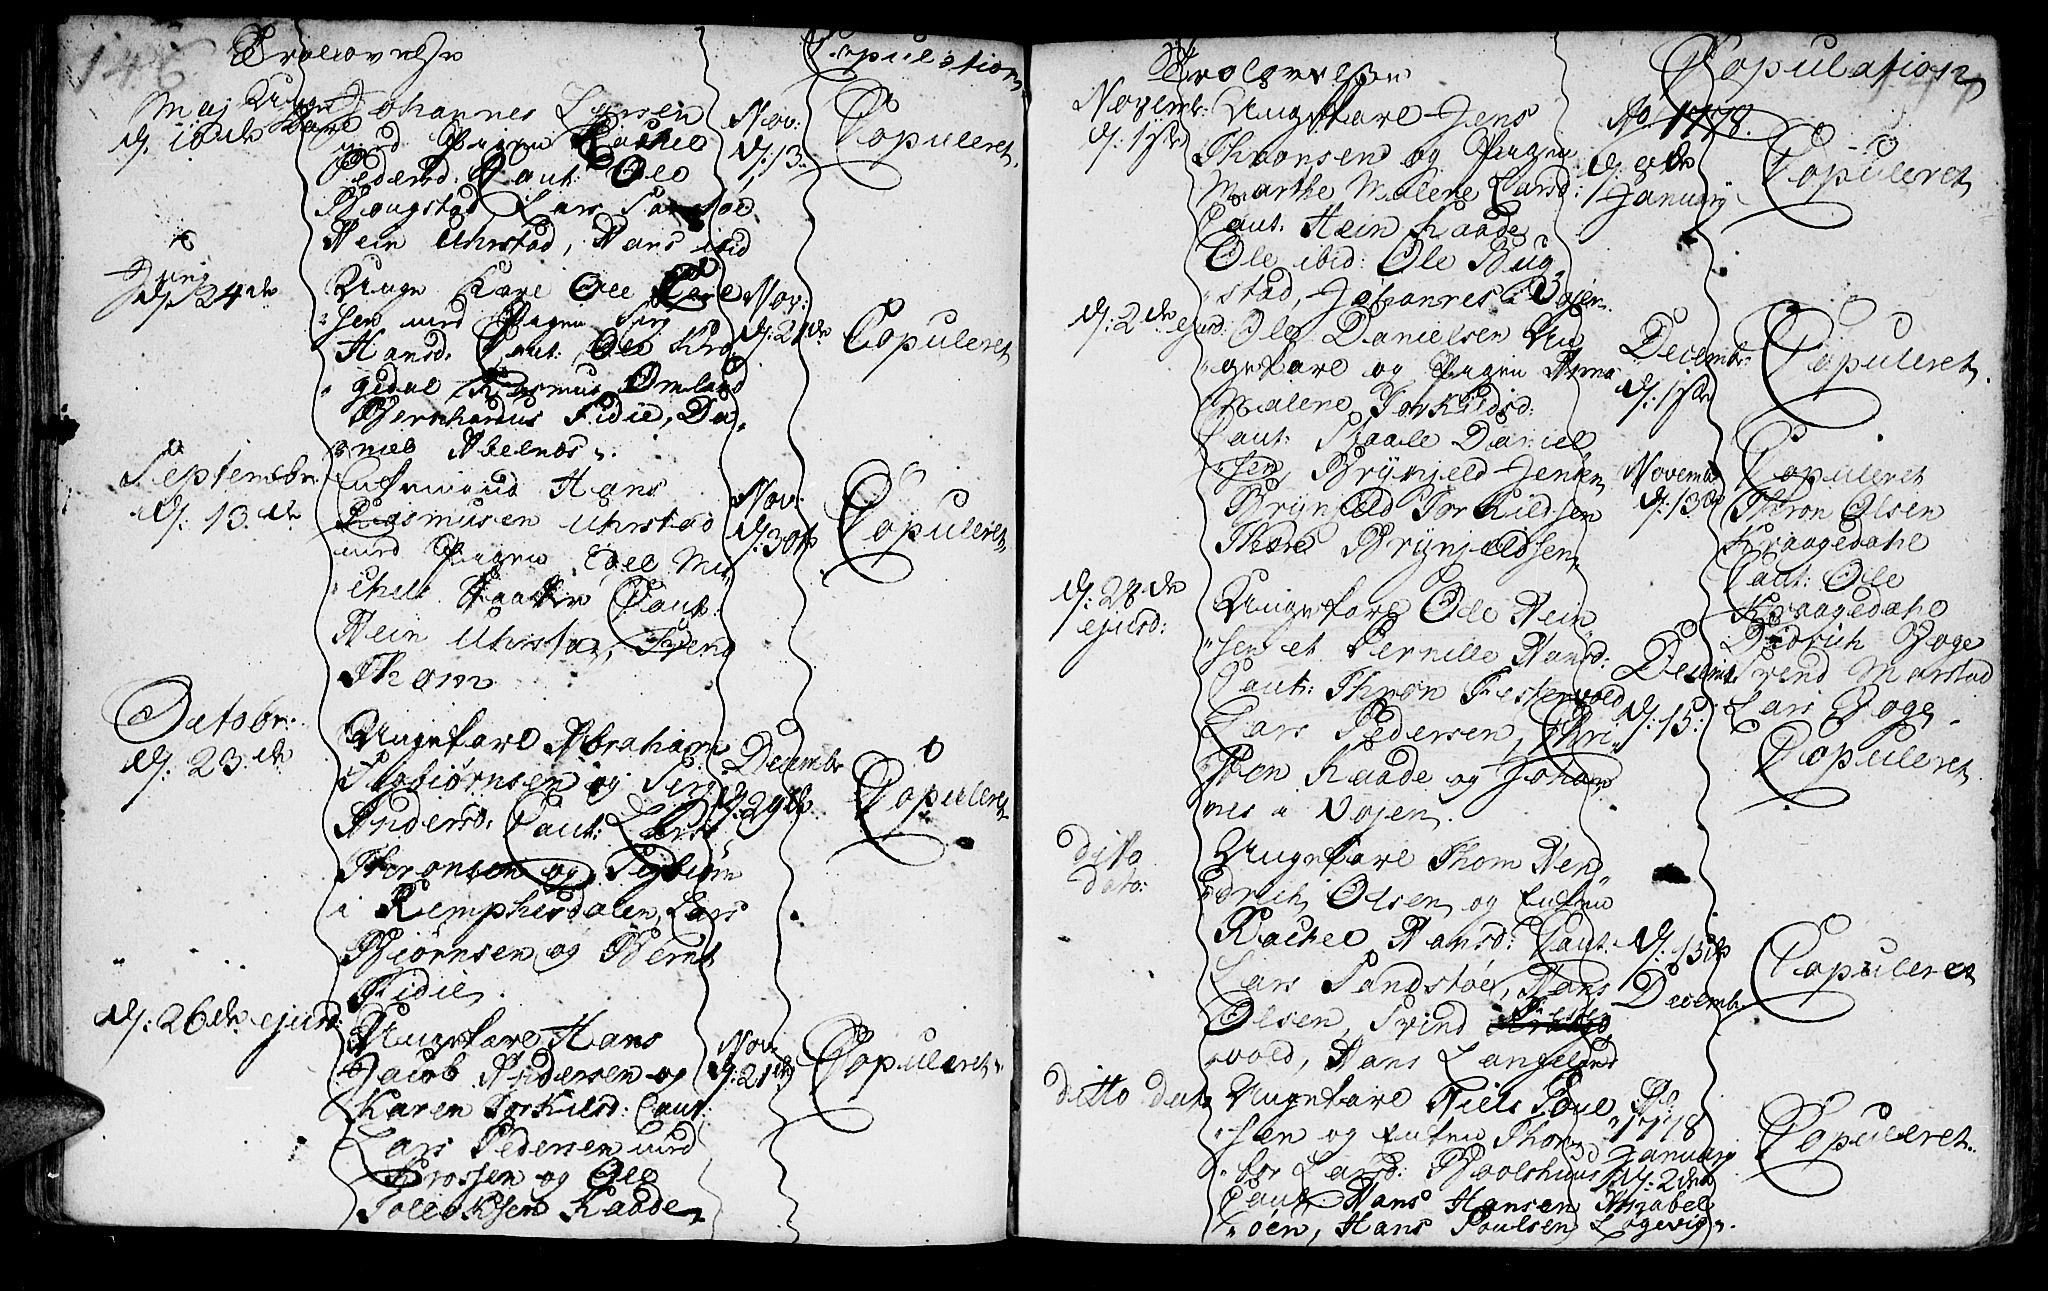 146
Trolovelse
Copulation
Maj
d. 16de
Ungekarl Johannes Larsen
med Pigen Rachel
Pedersd. Caut: Ole
Bougstad Lars Sandstøe
Hein Uhrstad, Hans ibid
Nov:
d: 13.
Copuleret.
Junij
d. 24de
Unge Karl Ole Lar
sen med Pigen Siri
Hansd: Caut: Ole Kro
gedal Rasmus Omland
Bernhardus Fidie, Da,
niel Abelnæs.
Nov:
d: 21de
Copuleret
Septembr.
d: 13.de
Enkemand Hans
Rasmusen Uhrstad
med Pigen Edel Mi
chels Caut:
Hein Uhrstad, Svend
Thom
Nov:
d: 30te
Copuleret
Octobr:
d: 23.de
Ungekarl Abraham
Torbiørnsen og Siri
Andersd: Caut: Lars
Thoronsen og Torbiørn
i Remphesdalen, Lars
Biørnsen og Bernt
Fidie.
Decembr
d: 29de
Copuleret
d: 26de ejusd:
Ungekarl Hans
Jacob Andersen og
Karen Torkilsd: Caut:
Lars Pedersen med
Krossen og Ole
Tollaksen Raade
Nov:
d: 21de
Copuleret.
147
Trolovelser
Copulation
Novemb:
d: 1ste
Ungekarl Jens
Thronsen og Pigen
Marthe Malene Larsd:
Caut. Hein Raade
Ole ibid: Ole Bug
stad, Johannes i Vojen
Ao 1778.
d. 9de
Januarij
Copuleret
d: 2de ejusd:
Ole Danielsen Un
gekarl og Pigen Anna
Malene Torkildsd:
Caut: Staale Daniel
sen, Brynjeld Jensen
Brynield Torkildsen
Thore Brynjeldsen
Decembr:
d: 1ste
Copuleret.
Novembr
d: 13de
Copuleret
Thron Olsen
Kraagedahl
Caut: Ole
Kraagedahl
Didrich Boge
Svend Marstad
Lars Boge
d: 28de
ejusd:
Ungekarl Ole Hein
sen et Pernille Hansd:
Caut: Thron Festervold
Lars Pedersen, Thri
sten Raade og Johan
nes i Vojen.
Decembr
d: 15.
Copuleret
ditto
dato:
Ungekarl Thom Hen,
drich Olsen og Enken
Rachel Hansd: Caut.
Lars Sandstøe, Hans
Olsen, Svind Fester
vold, Hans Langeland
d: 15de
Decembr
Copuleret
ditto dato
Ungekarl Niels Poul
sen og Enken Thom
for Larsd: Boolshuus
Caut Hans Hansen Abel
oen, Hans Poulsen Løgevig.
Ao
1778
Januarij
d: 2den
Copuleret.